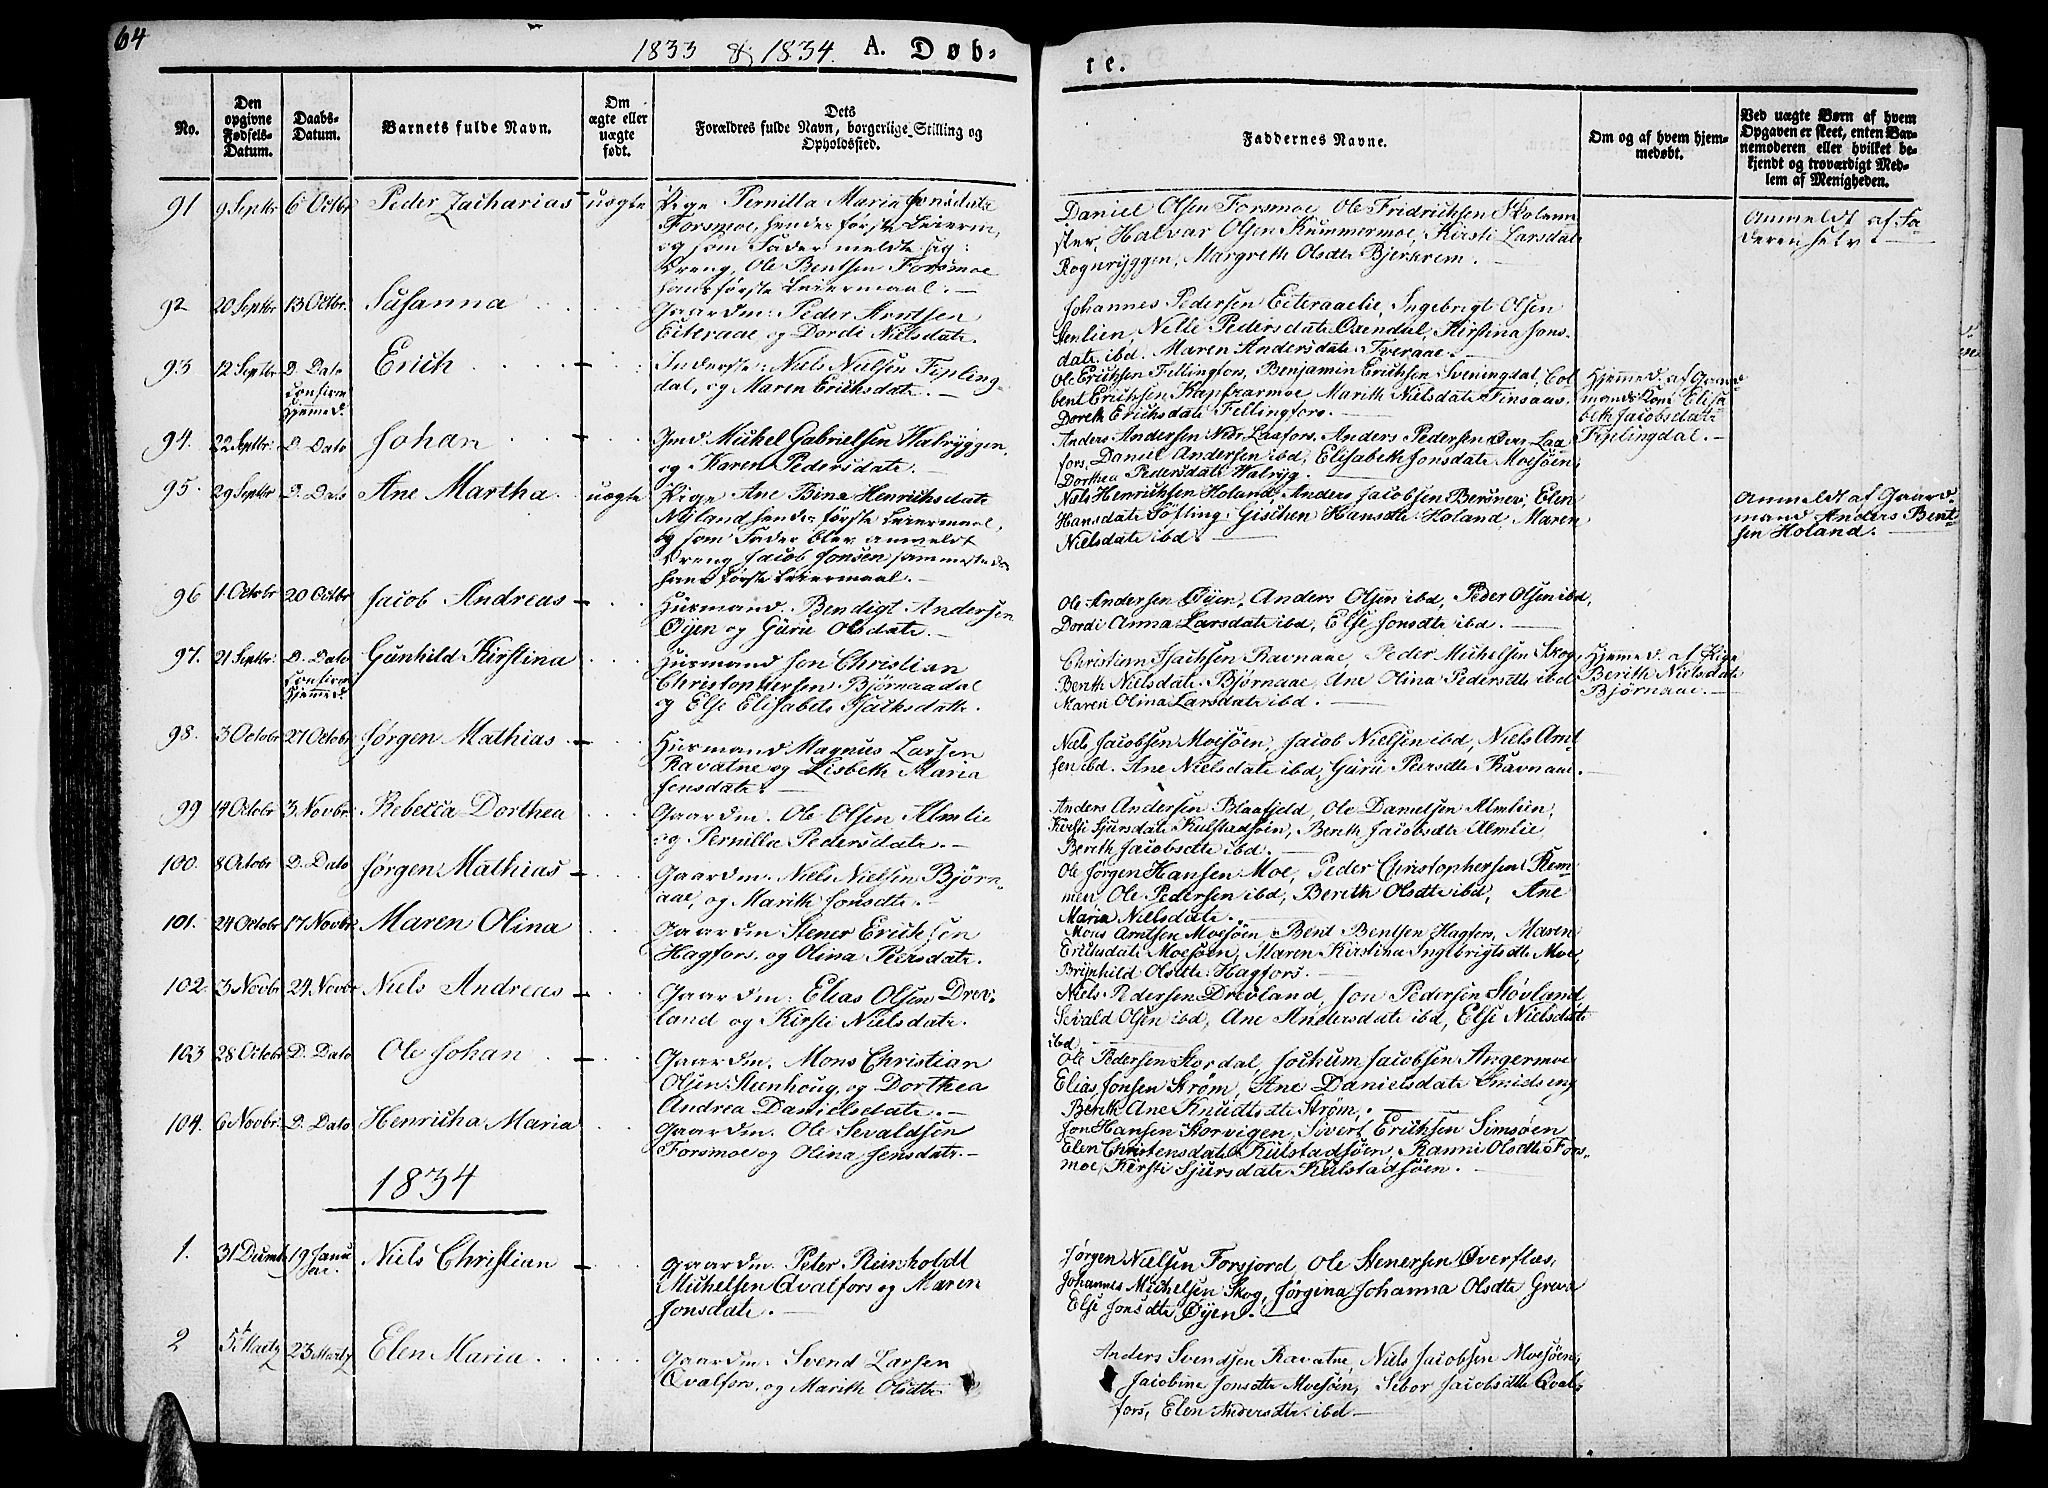 64
1833 & 1834. A. Døb-
re.
No.
Den opgivne Fødsels-Datum.
Daabs-Datum.
Barnets fulde Navn.
Om ægte eller uægte født.
Dets Forældres fulde Navn, borgerlige Stilling og Opholdssted.
Faddernes Navne.
Om og af hvem hjem-medøbt.
Ved uægte Børn af hvem Opgaven er skeet, enten Bar-nemoderen eller hvilket be-kjendt og troværdigt Med-lem af Menigheden.
91 9 Septbr 6 Octbr Peder Zacharias uægte Pige Pernilla Maria Jonsdatr
Forsmoe, hendes første Leierm,
og som Fader meldte sig:
Dreng, Ole Bentsen Forsmoe
hans første Leiermaal.
Daniel Olsen Forsmoe, Ole Fridrichsen Skolem
ster, Halvar Olsen Kummermoe, Kirsti Larsdatr
Rognryggen, Margreth Olsdtr Bjerkrem.
Anmeldt af Fa-
deren selv.
92 20 Septbr 13 Octbr. Susanna Gaardm: Peder Arntsen
Eiteraae og Dordi Nielsdatr.
Johannes Pedersen Eiteraaelie, Ingebrigt Olsen
Stenlien, Nelle Pedersdatr Øxendal, Kirstina Jons-
datr ibd. Maren Andersdatr Tveraae.
93 12 Septbr D. Dato confirm Hjemmed. Erich Inderste: Niels Nielsen Fipling-
dal, og Maren Erichsdatr.
Ole Erichsen Fellingfors, Benjamin Erichsen Sveningdal, Col
bent Erichsen Kapfrarmoe, Marith Nielsdatr Finsaas.
Doreth Erichsdatr Fellingfors.
Hjemmed. af Gaard
mands Kone Elisa
beth Jacobsdatr
Fiplingdal.
94. 22 Septbr: D. Dato Johan Ind. Michel Gabrielsen Halryggen,
og Karen Pedersdatr.
Anders Andersen Nedr Laafors. Anders Pedersen Over Laa
fors, Daniel Andersen ibd, Elisabeth Jonsdatr Moesøen,
Dorthea Pedersdatr Halryg.
95. 29 Septbr D. Dato Ane Martha uægte Pige Ane Bine Henrichsdatr
Nyland hendes første Leiermaal,
og som Fader blev anmeldt
Dreng Jacob Jonsen sammesteds
hans første Leiermaal.
Niels Henrichsen Holand, Anders Jacobsen Bersner, Elen
Hansdatr Søfting, Gischen Hansdtr Holand, Maren
Nielsdatr ibd.
Anmeldt af Gaard
mand Anders Bent-
sen Holand.
96 1 Octobr 20 Octbr Jacob Andreas Husmand: Bendigt Andersen
Øijen og Guru Olsdatr.
Ole Andersen Øijen, Anders Olsen ibd, Peder Olsen ibd,
Dordi Anna Larsdatr ibd, Else Jonsdtr ibd.
97. 21 Septbr: D. Dato confirm Hjemmed Gunhild Kirstina Husmand Jon Christian
Christophersen Bjørnaadal
og Else Elisabets Isachsdatr.
Christian Isachsen Ravnaae, Peder Michelsen Skog,
Berith Nielsdatr Bjørnaae, Ane Olina Pedersdtr ibd
Maren Olina Larsdatr ibd.
Hjemmed. af Pige
Berith Nielsdatr
Bjørnaae.
98. 3 Octobr 27 Octobr Jørgen Mathias Husmand Magnus Larsen
Ravatne og Lisbeth Maria
Jensdatr.
Niels Jacobsen Moesøen, Jacob Nielsen ibd, Niels Arnt
sen ibd. Ane Nielsdatr ibd, Guru Peersdtr Ravnaae.
99 14 Octobr 3 Novbr. Rebecca Dorthea Gaardm: Ole Olsen Almlie
og Pernilla Pedersdatr.
Anders Andersen Blaafjeld, Ole Danielsen Almlien,
Kirsti Sjursdatr Kulstadsøen, Berith Jacobsdtr Almlie,
Berith Jacobsdtr ibd.
100. 8 Octobr D. Dato Jørgen Mathias Gaardm: Niels Nielsen Bjørn-
aae, og Marith Jonsdtr.
Ole Jørgen Hansen Moe, Peder Christophersen Rem-
men, Ole Pedersen ibd, Berith Olsdtr ibd, Ane
Maria Nielsdatr.
101. 24 Octobr 17 Novbr. Maren Olina Gaardm Stener Erichsen
Hagfors, og Olina Peersdatr.
Mons Arntsen Moesøen, Bent Bentsen Hagfors, Maren
Erichsdatr Moesøen, Maren Kirstina Ingebrigtsdtr Moe,
Brynhild Olsdtr Hagfors.
102. 3 Novbr 24 Novbr Niels Andreas Gaardm: Elias Olsen Drev-
land og Kirsti Nielsdatr.
Niels Pedersen Drevland, Jon Pedersen Støvland
Sevald Olsen ibd, Ane Andersdatr ibd, Else Nielsdatr
ibd.
103 28 Octobr D. Dato Ole Johan Gaardm. Mons Christian
Olsen Stenhoug, og Dorthea
Andrea Danielsdatr.
Ole Pedersen Stordal, Jochum Jacobsen Angermoe
Elias Jonsen Strøm, Ane Danielsdatr Smidseng
Berith Ane Knudtsdtr Strøm.
104. 6 Novbr. D. Dato Henricha Maria Gaardm. Ole Sevaldsen
Forsmoe og Olina Jensdatr.
Jon Hansen Korvigen, Sivert Erichsen Simsøen
Elen Christensdatr Kulstadsøen, Ranni Olsdtr Fors-
moe, Kirsti Sjursdatr Kulstadsøen.
1834
1. 31 Decmb 19 Janu ar. Niels Christian Gaardm. Peter Reinholdt
Michelsen Qvalfors og Maren
Jonsdatr.
Jørgen Nielsen Forsjord, Ole Stenersen Øverflæs,
Johannes Michelsen Skog, Jørgina Johanna Olsdtr Greva
Else Jonsdtr Øyen.
2 5t Martz 23 Martz Elen Maria Gaardm: Svend Larsen
Qvalfors, og Marith Olsdtr
Anders Svendsen Ravatne, Niels Jacobsen Moesøen,
Jacobine Jonsdtr Moesøen, Sebor Jacobsdtr Qval-
fors, Elen Andersdtr ibd